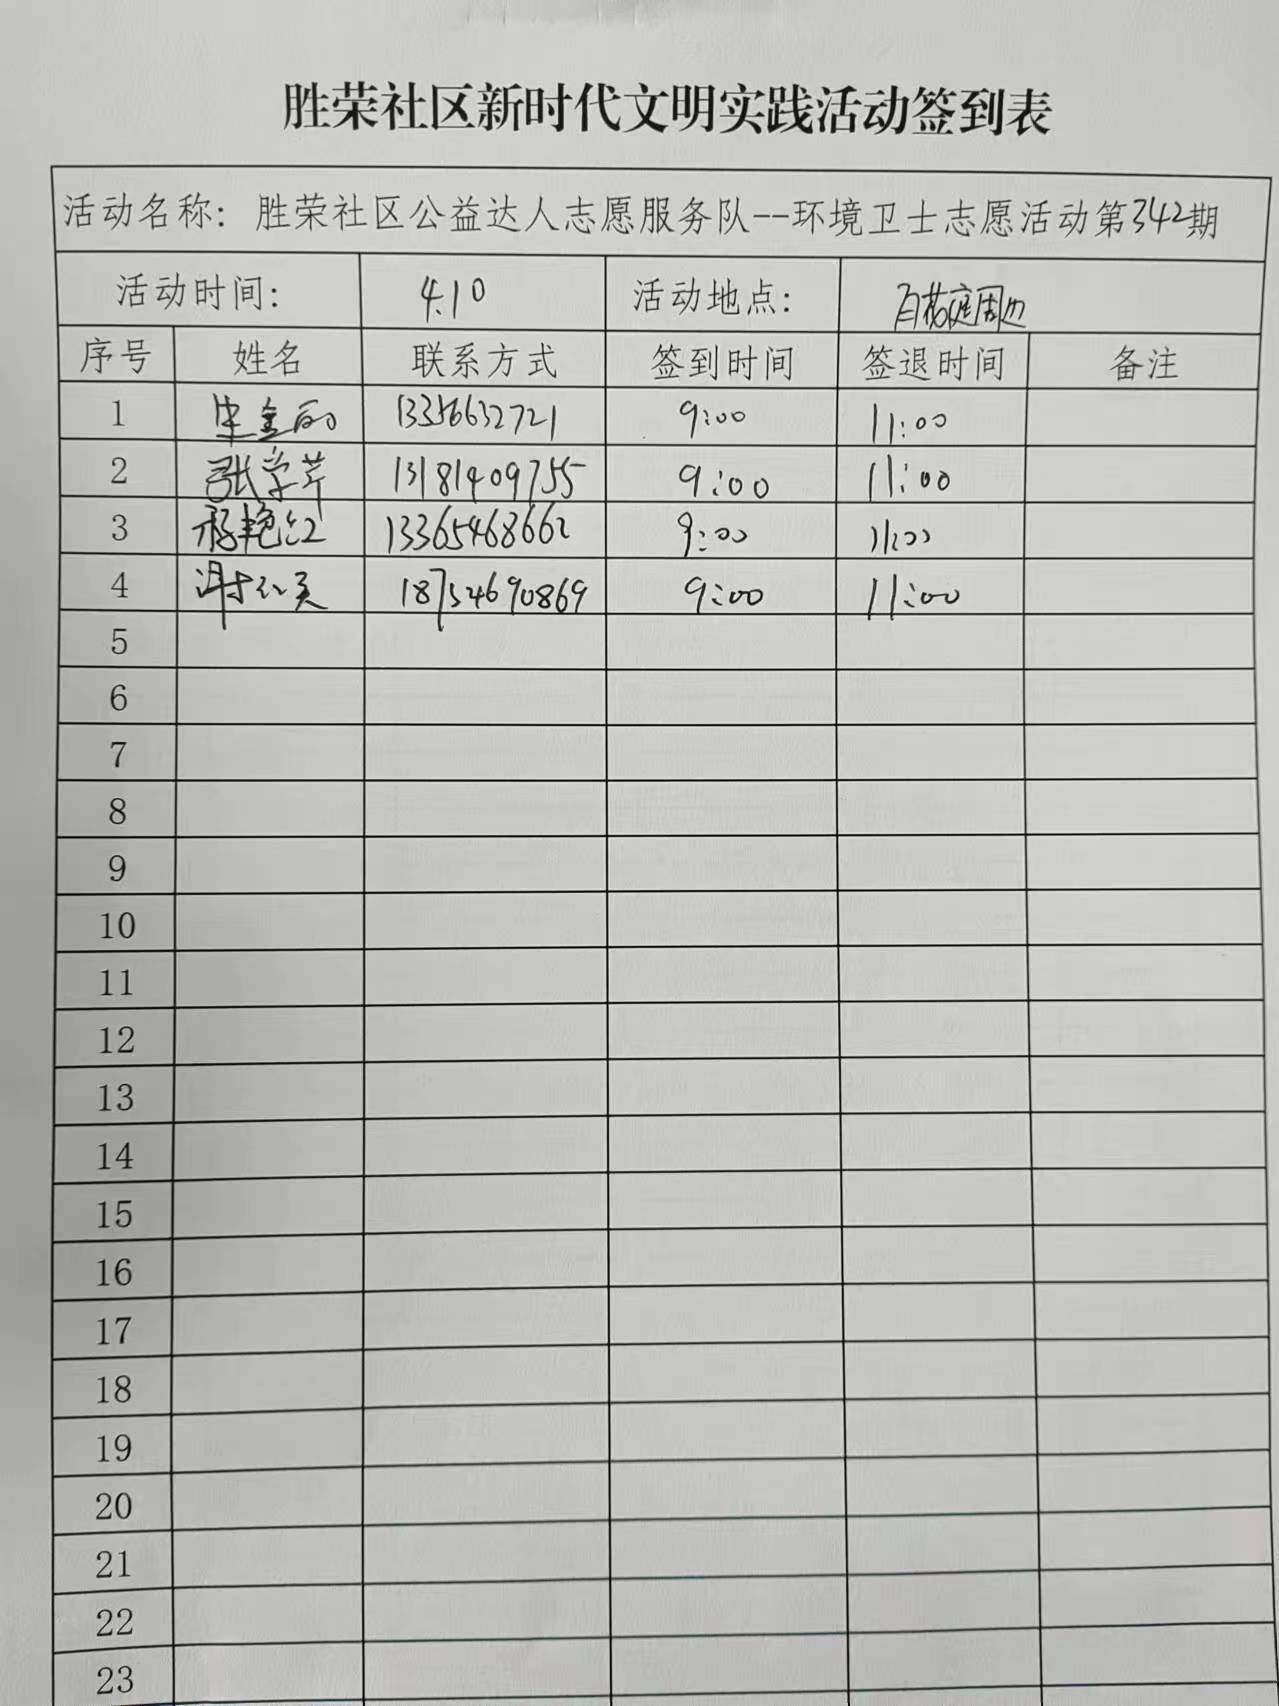 胜荣社区新时代文明实践活动签到表
活动名称：胜荣社区公益达人志愿服务队--环境卫士志愿活动第342期
活动时间： 4.10 活动地点： 百花庭周边
序号 姓名 联系方式 签到时间 签退时间 备注
1 13356632721 9:00 11:00
2 张学芹 13181409755 9:00 11:00
3 杨艳红 13365468662 9:00 11:00
4 谢红英 18754690869 9:00 11:00
5
6
7
8
9
10
11
12
13
14
15
16
17
18
19
20
21
22
23